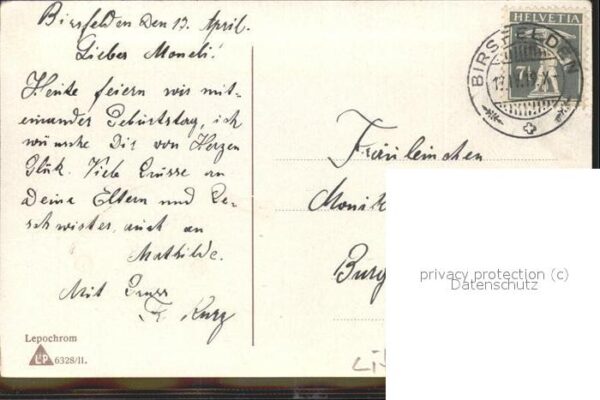 Birsfelden den 13. April.
Lieber Moneli!
Heute feiern wir mit-
einander Geburtstag, ich
wünsche Dir von Herzen
Glück. Viele Grüsse an
Deine Eltern und Ge-
schwister, auch an
Mathilde.
Mit Gruss
F. Kurz
Lepochrom
L&P 6328/II.
HELVETIA
7½
BIRSFELDEN
Fräuleinchen
Monik
Burg
privacy protection (c)
Datenschutz